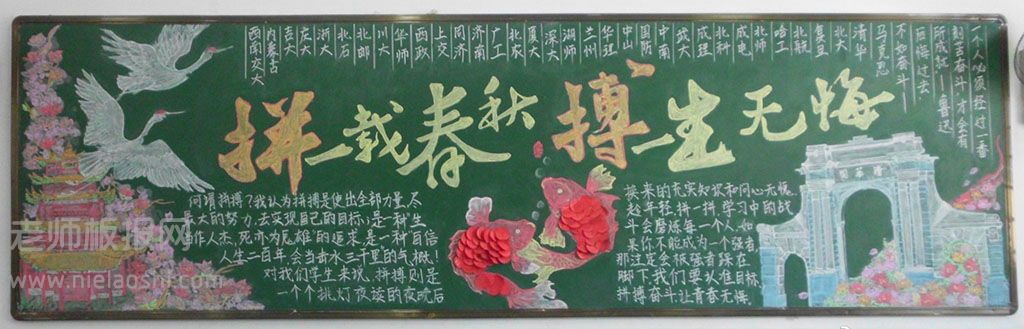 一个人必须经过一番
刻苦奋斗,才会有
所成就——鲁迅
后悔过去
不如奋斗——
马克思
清华
北大
复旦
北航
哈工
北师
成电
北科
成理
武大
中南
国防
中山
华理
兰州
湖师
深大
厦大
北农
广工
济南
同济
上交
西政
华师
川大
北邮
北石
浙大
农大
吉大
内蒙古
西南交大
拼一载春秋 搏一生无悔
何谓拼搏?我认为拼搏是使出全部力量,尽
最大的努力,去实现自己的目标;是一种“生
当作人杰,死亦为鬼雄”的追求,是一种“自信
人生二百年,会当击水三千里”的气概!
对我们学生来说,拼搏则是
一个个挑灯夜读的夜晚后
换来的充实知识和问心无愧,
趁年轻,拼一拼,学习中的战
斗会磨练每一个人,如
果你不能成为一个强者,
那注定会被强者踩在
脚下,我们要认准目标,
拼搏奋斗让青春无悔
清华园
老师板报网
www.nielaoshi.com